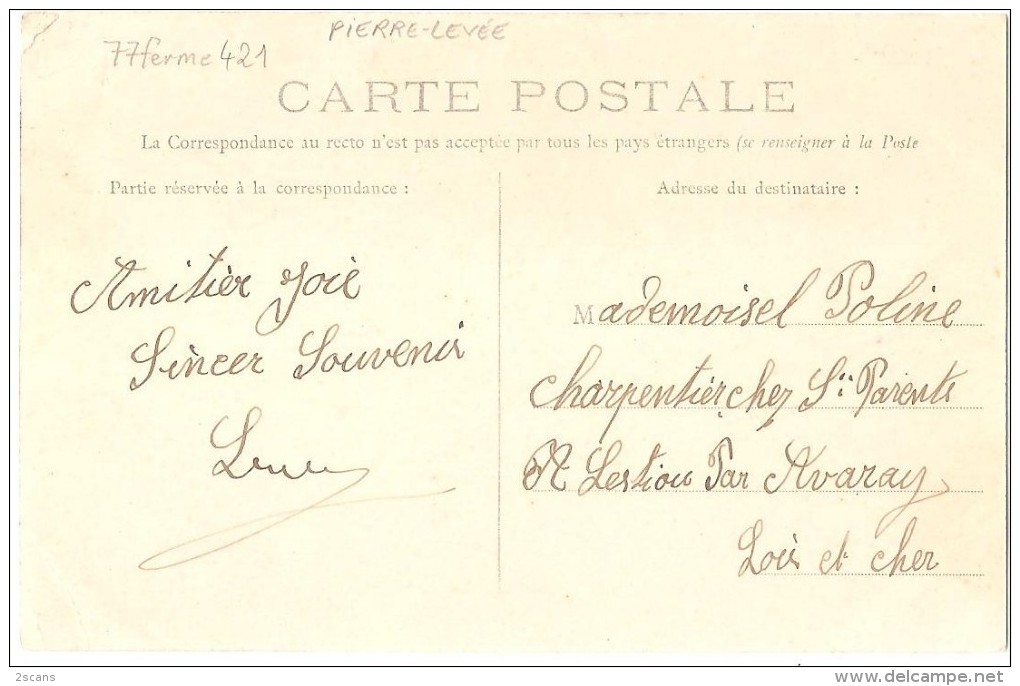 PIERRE-LEVÉE
77ferme421
CARTE POSTALE
La Correspondance au recto n'est pas acceptée par tous les pays étrangers (se renseigner à la Poste
Partie réservée à la correspondance :
Amitièr Joie
Sincer Souvenir
Adresse du destinataire :
Mademoisel Poline
Charpentier chez Ses Parents
A Lestiou Par Avaray
Loir et cher
2scans
www.delcampe.net